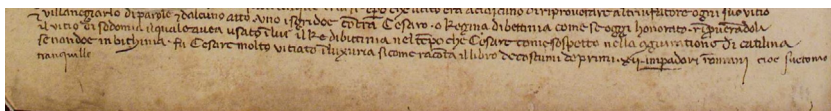 & villaneggiarlo di parole & dalcuno atto .uno isgridoe contra Cesaro .o Regina di bettinia come se oggi honorato. rimproverādoli
il vitio di soddomia il quale avea usato con lui il Re di bittinia nel tēpo che Cesare come sospetto nella congiuratione di catilina
se nandoe in bithinia. fu Cesare molto vitiato in luxuria sicome racōta il libro de costumi de primi .xii. impadori romani cioe suetonio
tranquillo